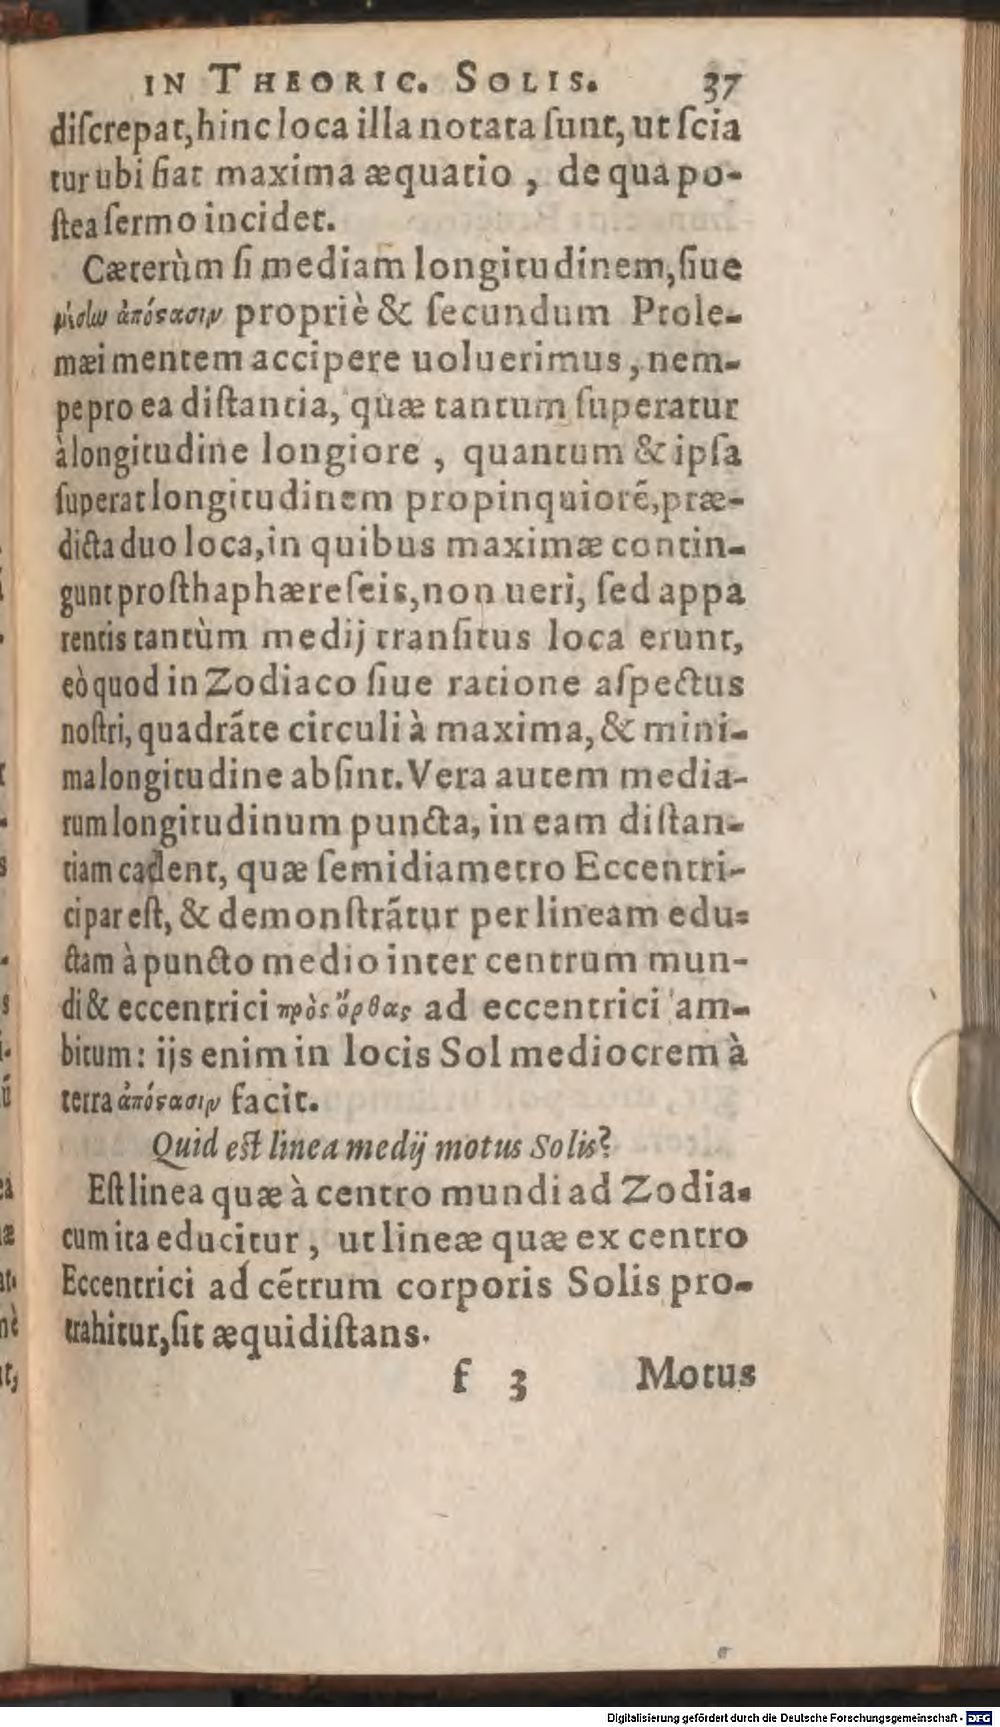 IN THEORIC. SOLIS. 37
diſcrepat, hinc loca illa notata ſunt, ut ſcia
tur ubi fiat maxima æquatio, de qua po-
ſtea ſermo incidet.
Cæterùm ſi mediam longitudinem, ſiue
μέσην ἀπόστασιν propriè & ſecundum Ptole-
mæi mentem accipere uoluerimus, nem-
pe pro ea diſtantia, quæ tantum ſuperatur
à longitudine longiore, quantum & ipſa
ſuperat longitudinem propinquiorẽ, præ-
dicta duo loca, in quibus maximæ contin-
gunt proſthaphæreſeis, non ueri, ſed appa
rentis tantùm medij tranſitus loca erunt,
eò quod in Zodiaco ſiue ratione aſpectus
noſtri, quadrãte circuli à maxima, & mini-
ma longitudine abſint. Vera autem media-
rum longitudinum puncta, in eam diſtan-
tiam cadent, quæ ſemidiametro Eccentri-
ci par eſt, & demonſtrãtur per lineam edu-
ctam à puncto medio inter centrum mun-
di & eccentrici πρὸς ὄρθας ad eccentrici am-
bitum: ijs enim in locis Sol mediocrem à
terra ἀπόστασιν facit.
Quid eſt linea medij motus Solis?
Eſt linea quæ à centro mundi ad Zodia-
cum ita educitur, ut lineæ quæ ex centro
Eccentrici ad cẽtrum corporis Solis pro-
trahitur, ſit æquidiſtans.
f 3 Motus
Digitalisierung gefördert durch die Deutsche Forschungsgemeinschaft - DFG